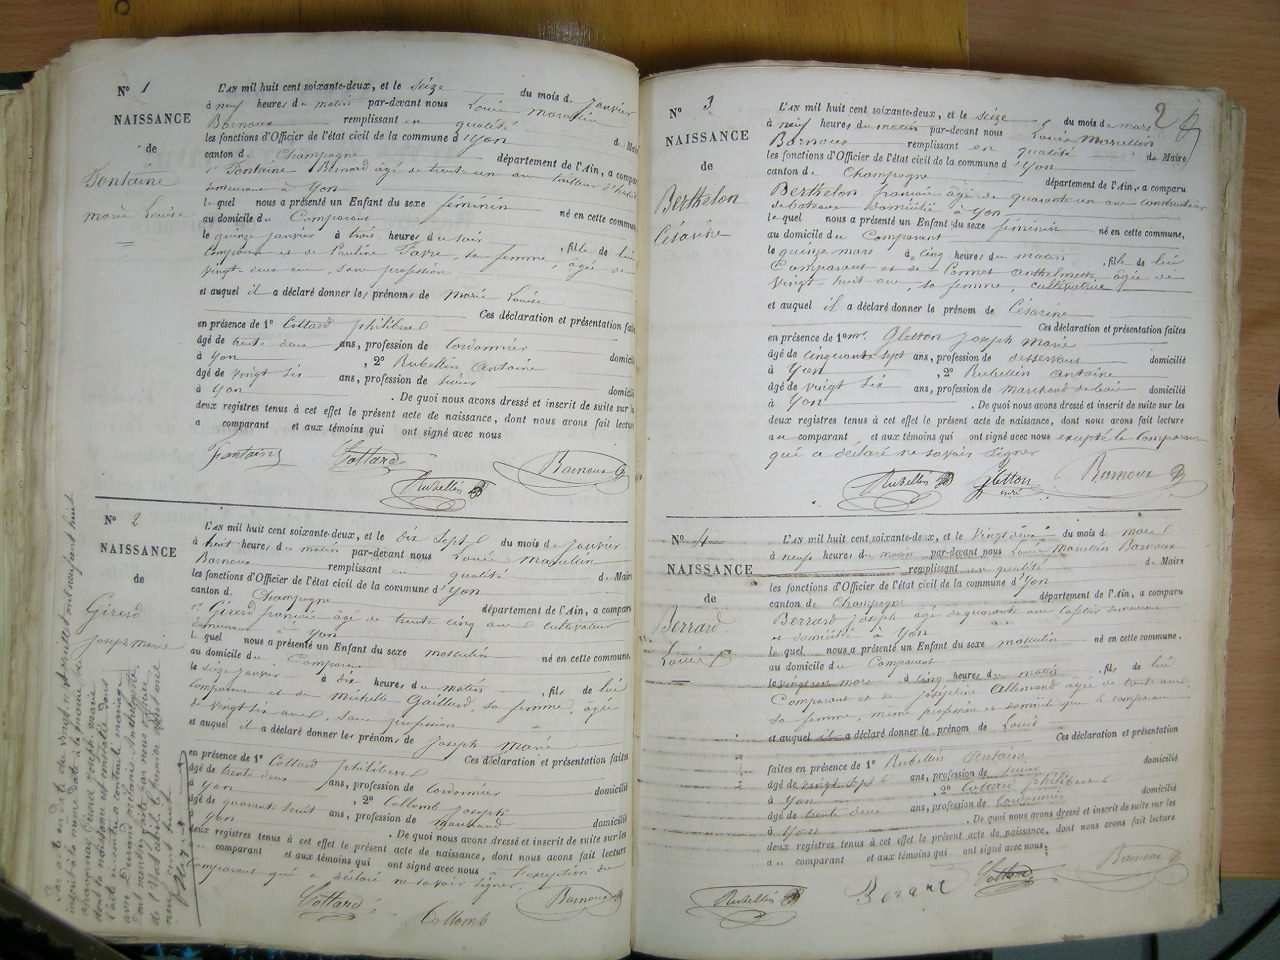 N° 1
NAISSANCE
de
Fontaine
marie Louise
L'AN mil huit cent soixante-deux, et le seize du mois de janvier
à neuf heures du matin par-devant nous Louis Marcelin
Barnoux remplissant en qualité de Maire
les fonctions d'Officier de l'état civil de la commune d'Yon
canton de Champagne département de l'Ain, a comparu
Fontaine Bernard âgé de trente un ans tailleur d'habits
demeurant à Yon
le quel nous a présenté un Enfant du sexe féminin né en cette commune,
au domicile du Comparant
le quinze janvier à trois heures du soir, fille de lui
Comparant et de Pauline Favre, sa femme, âgée de
vingt deux ans, sans profession
et auquel il a déclaré donner les prénoms de Marie Louise
Ces déclaration et présentation faites
en présence de 1° Cottard philibert
âgé de trente deux ans, profession de cordonnier domicilié
à Yon, 2° Rubellin Antoine
âgé de vingt six ans, profession de domicilié
à Yon. De quoi nous avons dressé et inscrit de suite sur les
deux registres tenus à cet effet le présent acte de naissance, dont nous avons fait lecture
a comparant et aux témoins qui ont signé avec nous
Fontaine Cottard Barnoux
Rubellin
N° 2
NAISSANCE
de
Girerd
Joseph Marie
L'AN mil huit cent soixante-deux, et le dix sept du mois de janvier
à huit heures du matin par-devant nous Louis Marcelin
Barnoux remplissant en qualité de Maire
les fonctions d'Officier de l'état civil de la commune d'Yon
canton de Champagne département de l'Ain, a comparu
Girerd françois âgé de trente cinq ans cultivateur
demeurant à Yon
le quel nous a présenté un Enfant du sexe masculin né en cette commune,
au domicile du Comparant
le seize janvier à dix heures du matin, fils de lui
Comparant et de Michelle Gaillard, sa femme, âgée
de vingt six ans, sans profession
et auquel il a déclaré donner les prénoms de Joseph Marie
Ces déclaration et présentation faites
en présence de 1° Cottard philibert
âgé de trente deux ans, profession de cordonnier domicilié
à Yon, 2° Collomb Joseph
âgé de quarante huit ans, profession de marchand domicilié
à Yon. De quoi nous avons dressé et inscrit de suite sur les
deux registres tenus à cet effet le présent acte de naissance, dont nous avons fait lecture
a comparant et aux témoins qui ont signé avec nous à l'exception du
comparant qui a déclaré ne savoir signer.
Cottard Collomb Barnoux
2
N° 3
NAISSANCE
de
Berthelon
Césarine
L'AN mil huit cent soixante-deux, et le seize du mois de mars
à neuf heures du matin par-devant nous Louis Marcellin
Barnoux remplissant en qualité de Maire
les fonctions d'Officier de l'état civil de la commune d'Yon
canton de Champagne département de l'Ain, a comparu
Berthelon françois âgé de quarante un ans conducteur
de bateaux domicilié à Yon
le quel nous a présenté un Enfant du sexe féminin né en cette commune,
au domicile du Comparant
le quinze mars à cinq heures du matin, fille de lui
Comparant et de Anthelmette, âgée de
vingt huit ans, sa femme, cultivatrice
et auquel il a déclaré donner le prénom de Césarine
Ces déclaration et présentation faites
en présence de 1° Gletton Joseph Marie
âgé de cinquante sept ans, profession de desservant domicilié
à Yon, 2° Rubellin Antoine
âgé de vingt six ans, profession de marchand de domicilié
à Yon. De quoi nous avons dressé et inscrit de suite sur les
deux registres tenus à cet effet le présent acte de naissance, dont nous avons fait lecture
au comparant et aux témoins qui ont signé avec nous excepté le Comparant
qui a déclaré ne savoir signer
Rubellin Gletton Barnoux
N° 4
NAISSANCE
de
Berrard
Louis
L'AN mil huit cent soixante-deux, et le vingt deux du mois de mars
à neuf heures du matin par-devant nous Louis Marcelin Barnoux
remplissant en qualité de Maire
les fonctions d'Officier de l'état civil de la commune d'Yon
canton de Champagne département de l'Ain, a comparu
Berrard Joseph âgé de quarante ans demeurant
et domicilié à Yon
le quel nous a présenté un Enfant du sexe masculin né en cette commune,
au domicile du Comparant
le vingt un mars à cinq heures du matin, fils de lui
Comparant et de Joséphine Allemand âgée de trente ans,
sa femme, même profession et domicile que le comparant
et auquel il a déclaré donner le prénom de Louis
Ces déclaration et présentation
faites en présence de 1° Rubellin Antoine
âgé de vingt sept ans, profession de domicilié
à Yon, 2° Cottard philibert
âgé de trente deux ans, profession de cordonnier domicilié
à Yon. De quoi nous avons dressé et inscrit de suite sur les
deux registres tenus à cet effet le présent acte de naissance, dont nous avons fait lecture
au comparant et aux témoins qui ont signé avec nous.
Rubellin Berard Cottard Barnoux